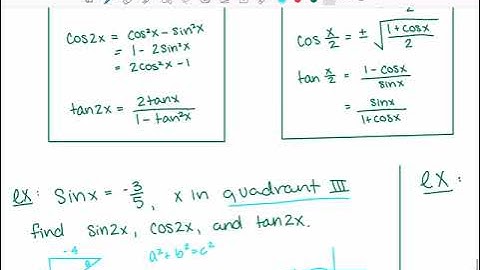 cos2x = cos²x - sin²x
= 1 - 2sin²x
= 2cos²x - 1
tan2x = 2tanx / 1 - tan²x
2
cos x/2 = ± √(1+cosx / 2)
tan x/2 = 1 - cosx / sinx
= sinx / 1+cosx
ex: sinx = -3/5, x in quadrant III
find sin2x, cos2x, and tan2x.
-4
a²+b²=c²
ex: